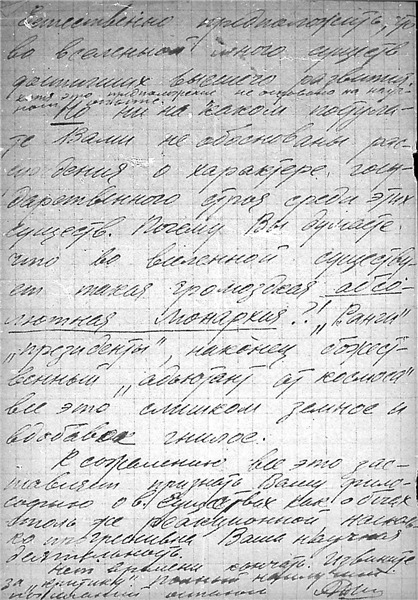 Естественно предположить, что
во вселенной много существ
достигших высшего развития.
хотя это предположение не основано на науч-
ном опыте.
Но ни на каком
Вами не обоснованы рас-
суждения о характере госу-
дарственного строя среди этих
существ. Почему Вы думаете,
что во вселенной существу-
ет такая громоздкая абсо-
лютная монархия?! „Ранги"
„президенты", наконец божест-
венный „адъютант от космоса"
все это слишком земное и
вдобавок гнилое.
К сожалению все это зас-
тавляет признать Вашу фило-
софию о в. существах как
столь же реакционной насколь-
ко прогрессивна Ваша научная
деятельность.
Нет времени кончать. Извините
за критику.